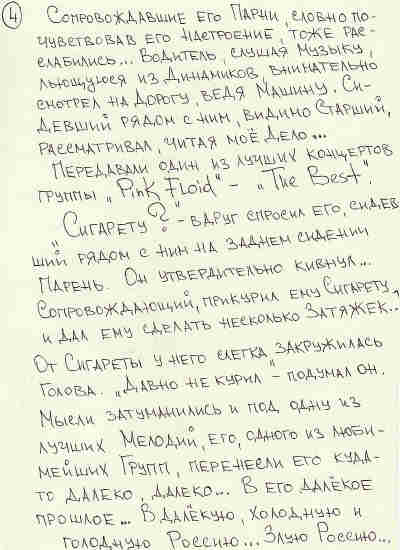 4
Сопровождавшие его Парни, словно по-
чувствовав его настроение, тоже рас-
слабились... Водитель, слушая музыку,
льющуюся из Динамиков, внимательно
смотрел на Дорогу, ведя Машину. Си-
девший рядом с ним, видимо Старший,
рассматривал, читая моё Дело...
Передавали один из лучших концертов
группы „Pink Floid" - „The Best".
„Сигарету?" - вдруг спросил его, сидев
ший рядом с ним на заднем сидении
Парень. Он утвердительно кивнул...
Сопровождающий, прикурил ему Сигарету,
и дал ему сделать несколько Затяжек...
От Сигареты у него слегка закружилась
голова. „Давно не курил" - подумал он.
Мысли затуманились и под одну из
лучших Мелодий, его, одного из люби-
мейших Групп, перенесли его куда-
то далеко, далеко... В его далёкое
прошлое... В далёкую, холодную и
голодную Россию... Злую Россию...